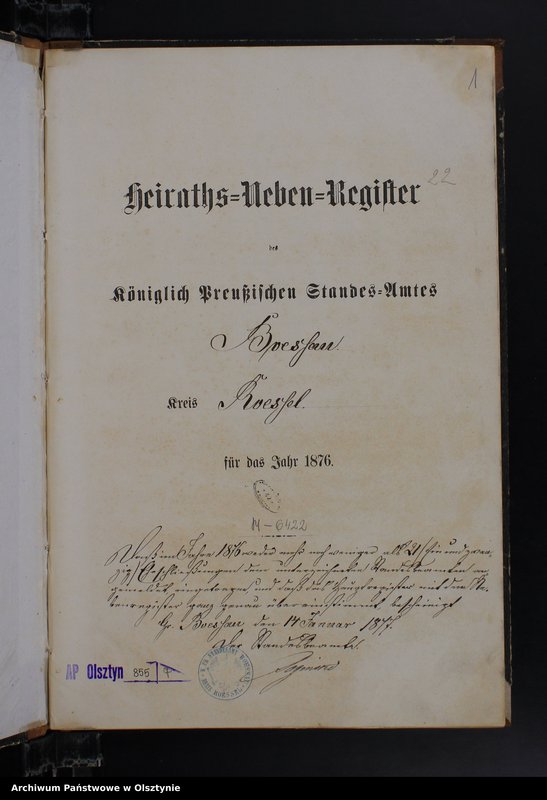 1
Heiraths=Neben=Register
22
des
Königlich Preußischen Standes=Amtes
Boessau.
Kreis Roessel.
für das Jahr 1876.
M-6422
Daß im Jahre 1876 weder mehr noch weniger als 21 /ein und zwan
zig/ Eheschließungen dem unterzeichneten Standesbeamten an
gemeldet eingetragen, und daß das Hauptregister mit dem Ne
benregister ganz genau übereinstimmt bescheinigt
Gr. Boessau den 14 Januar 1877.
Der Standesbeamte.
AP Olsztyn 855
Archiwum Państwowe w Olsztynie